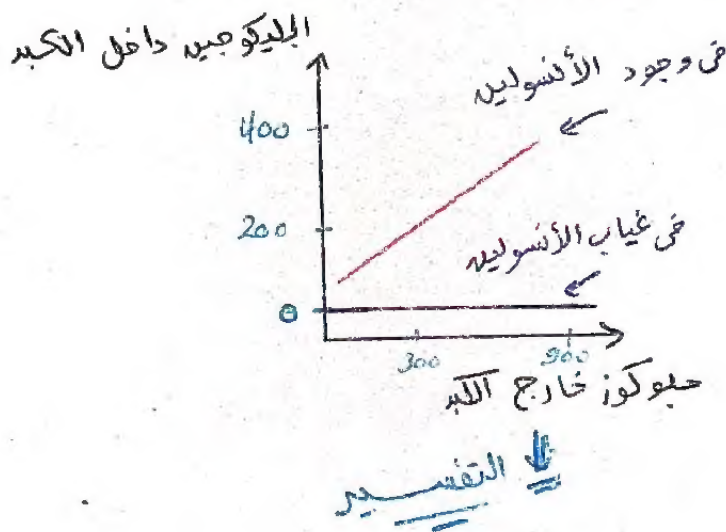 الجليكوجين داخل الكبد
في وجود الأنسولين
400
200
في غياب الأنسولين
0
300
900
جلوكوز خارج الكبد
التفسير